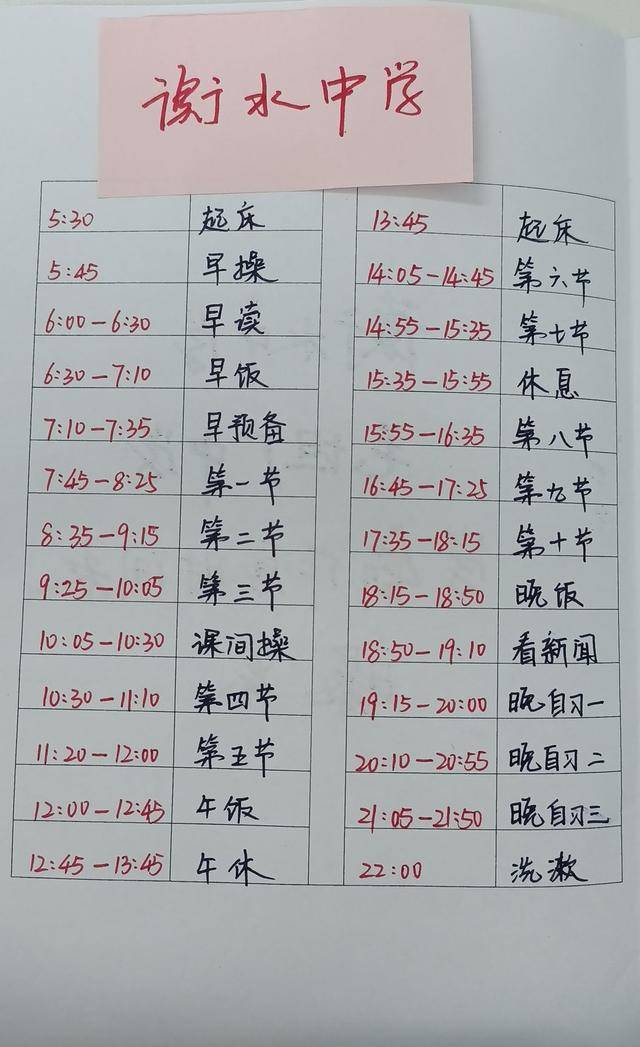 衡水中学
5:30 起床
5:45 早操
6:00－6:30 早读
6:30－7:10 早饭
7:10－7:35 早预备
7:45－8:25 第一节
8:35－9:15 第二节
9:25－10:05 第三节
10:05－10:30 课间操
10:30－11:10 第四节
11:20－12:00 第五节
12:00－12:45 午饭
12:45－13:45 午休
13:45 起床
14:05－14:45 第六节
14:55－15:35 第七节
15:35－15:55 休息
15:55－16:35 第八节
16:45－17:25 第九节
17:35－18:15 第十节
18:15－18:50 晚饭
18:50－19:10 看新闻
19:15－20:00 晚自习一
20:10－20:55 晚自习二
21:05－21:50 晚自习三
22:00 洗漱